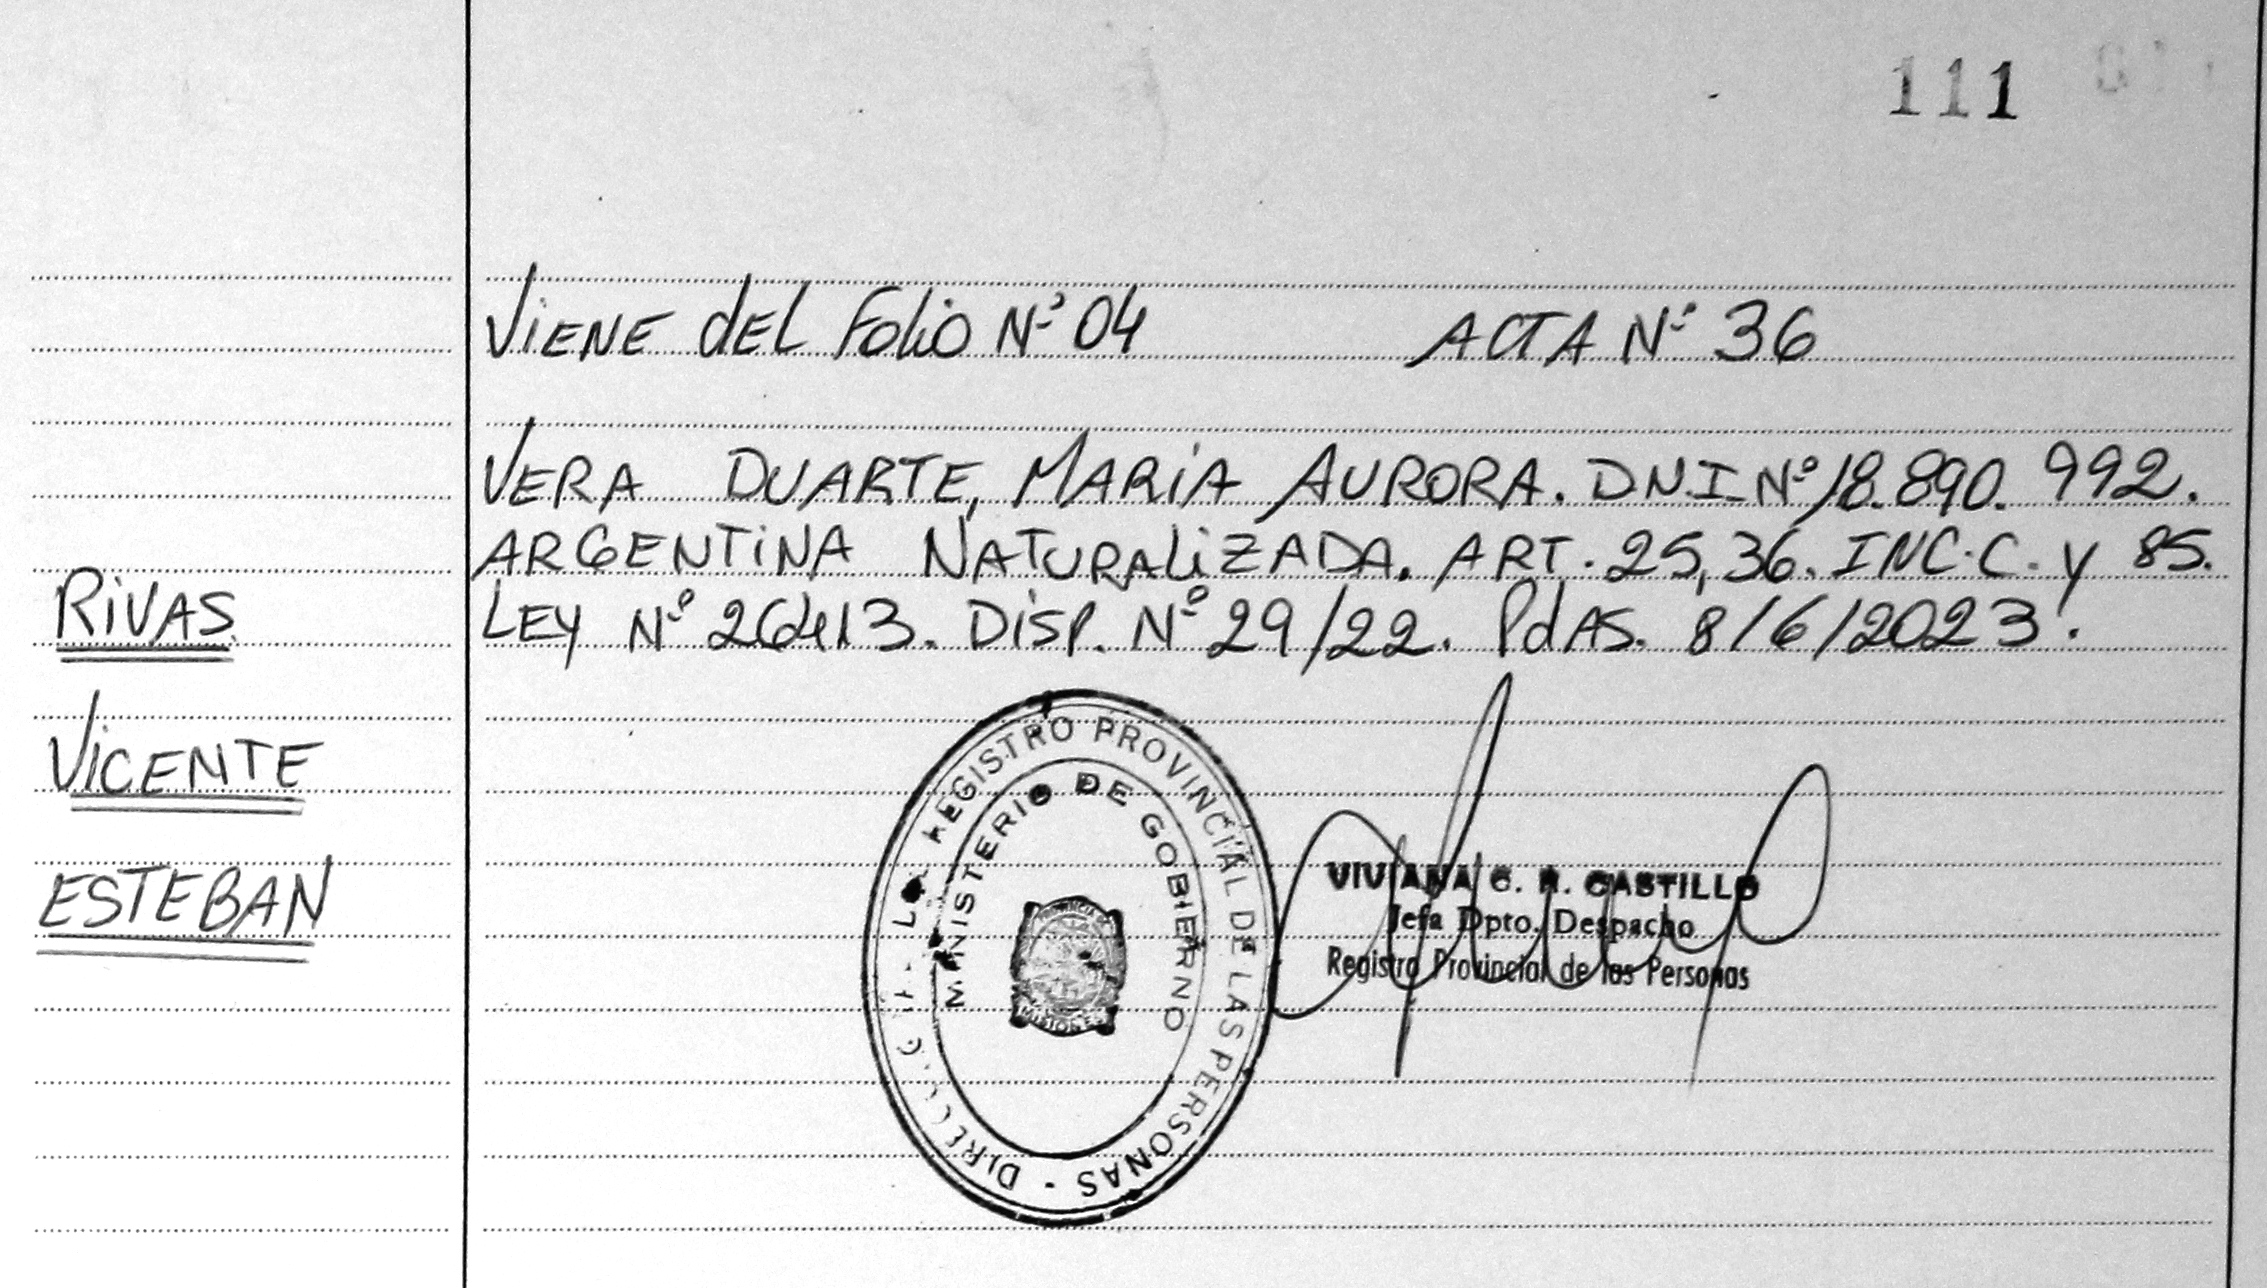 111
Viene del Folio Nº 04 ACTA Nº 36
VERA DUARTE, MARIA AURORA. D.N.I. Nº 18.890.992.
ARGENTINA NATURALIZADA. ART. 25, 36. INC. C. y 85.
LEY Nº 26413. DISP. Nº 29/22. PdAS. 8/6/2023.
RIVAS
VICENTE
ESTEBAN
REGISTRO PROVINCIAL DE LAS PERSONAS
MINISTERIO DE GOBIERNO
MISIONES
VIVIANA C. R. CASTILLO
Jefa Dpto. Despacho
Registro Provincial de las Personas